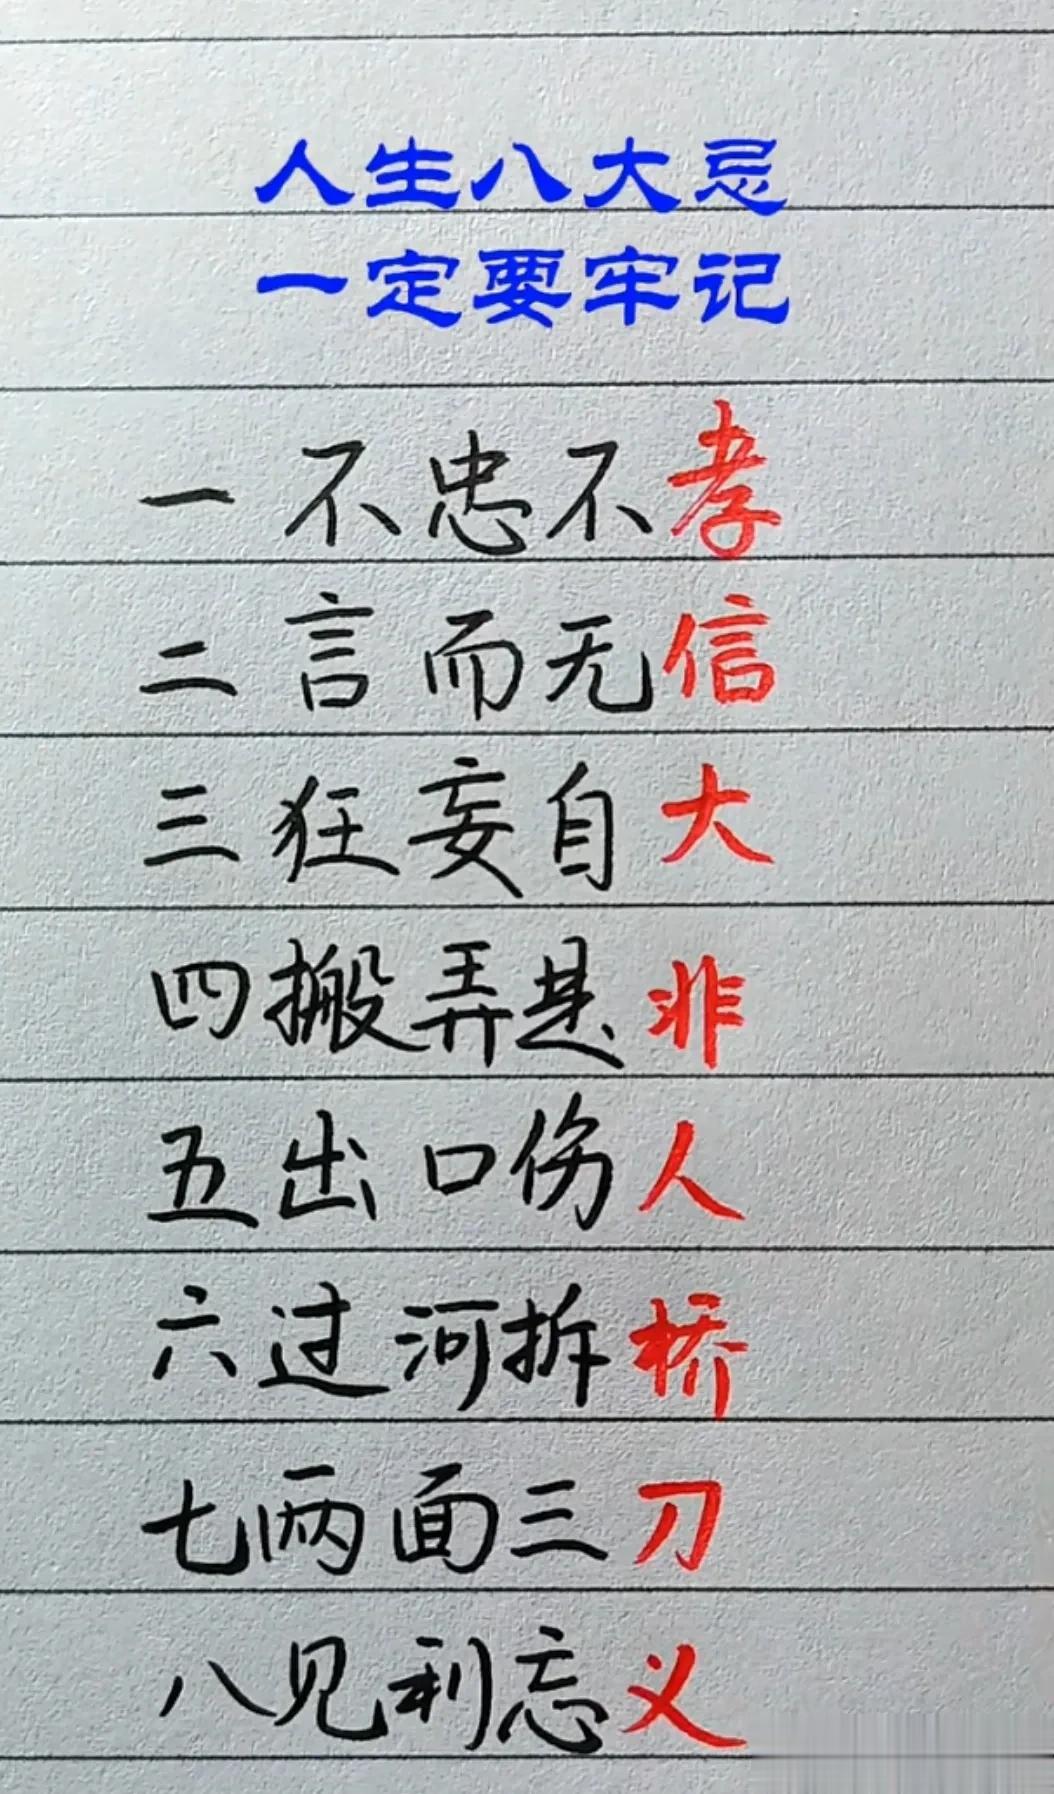 人生八大忌
一定要牢记
一不忠不孝
二言而无信
三狂妄自大
四搬弄是非
五出口伤人
六过河拆桥
七两面三刀
八见利忘义